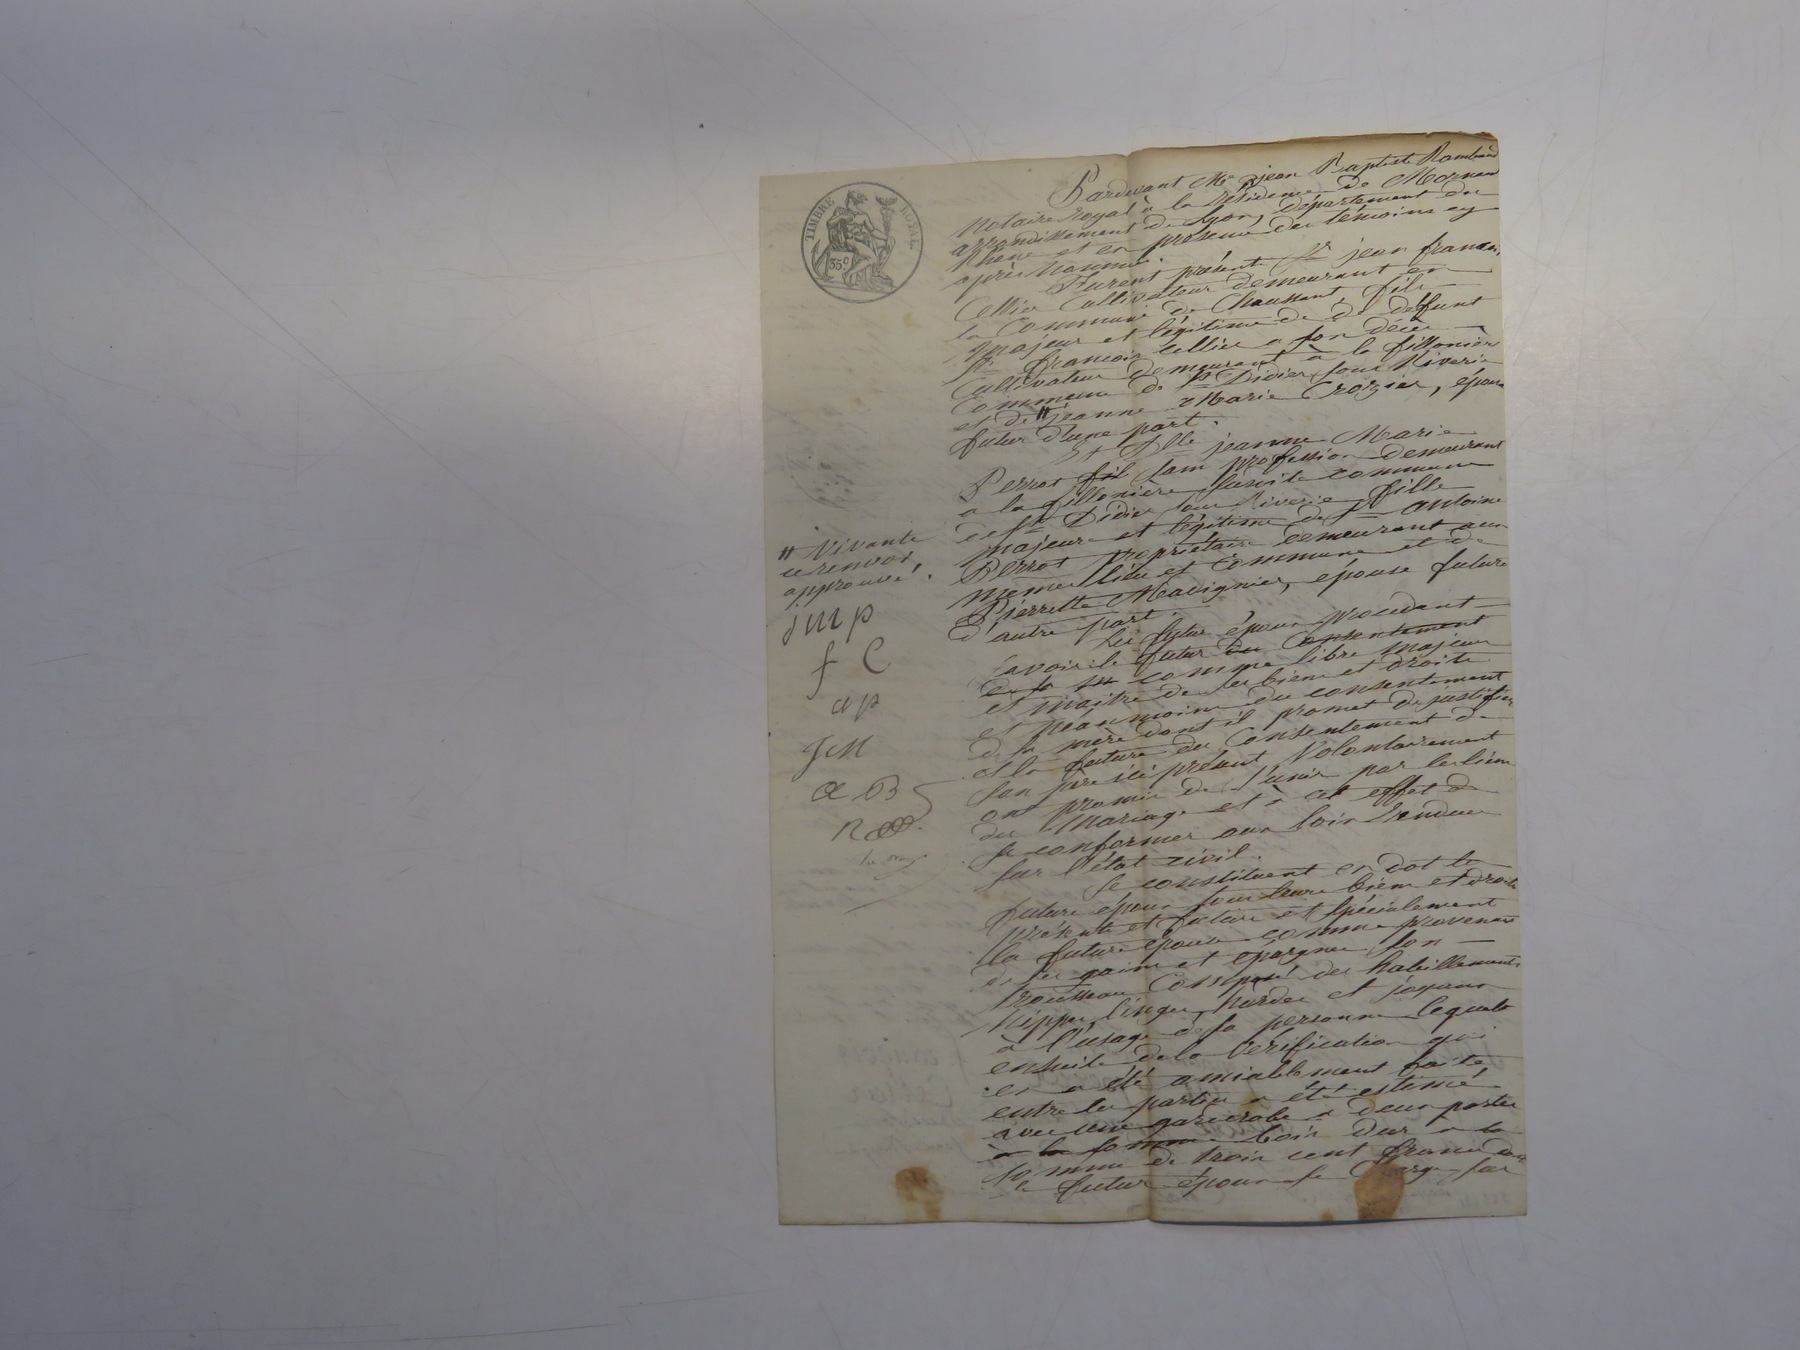 TIMBRE ROYAL
35c
Pardevant Me jean Baptiste Rambaud
Notaire royal à la résidence de Mornand
arrondissement de Lyon, département du
Rhône et en présence des témoins cy
après Nommés
Furent présent Sr jean francois
Cellier Cultivateur demeurant en
la Commune de Chaussant, fils
majeur et légitime de défunt
Sr francois Cellier a son décès
Cultivateur demeurant à la fillonière
Commune de St Didier sous Riverie
et de # jeanne Marie Crozier, époux
futur d'une part.
Et Dlle jeanne Marie
Perrot fil sans profession demeurant
a la fillonière susdite commune
de St Didier sous Riverie fille
majeure et légitime de Sr antoine
Perrot propriétaire demeurant aux
meme lieu et Commune et de
Pierrette Mavignier, épouse future
d'autre part
Les futur époux procédant
savoir le futur du Consentement
de sa comme libre majeur
et maitre de ses biens et droits
et néanmoins du consentement
de sa mère dont il promet de justifier
et la future du Consentement de
son père ici présent Volontairement
ont promis de s'unir par les liens
du Mariage et à cet effet de
se conformer aux loix rendues
sur l'état civil.
Se constituent en dot les
futurs époux tous leurs biens et droits
présents et futurs et spécialement
la future épouse comme provenant
de ses gains et épargnes son
trousseau Composé des habillements
Nippes, linges, hardes et joyaux
à l'usage de sa personne lequel
ensuite de la vérification qui
en a été amiablement faite
entre les parties a été estimé
avec une garderobe a deux portes
à la somme bois dur a la
somme de trois cent francs dont
le futur époux se charge, sur
# Vivante
ce renvoi
approuvé.
jmp
f C
ap
JM